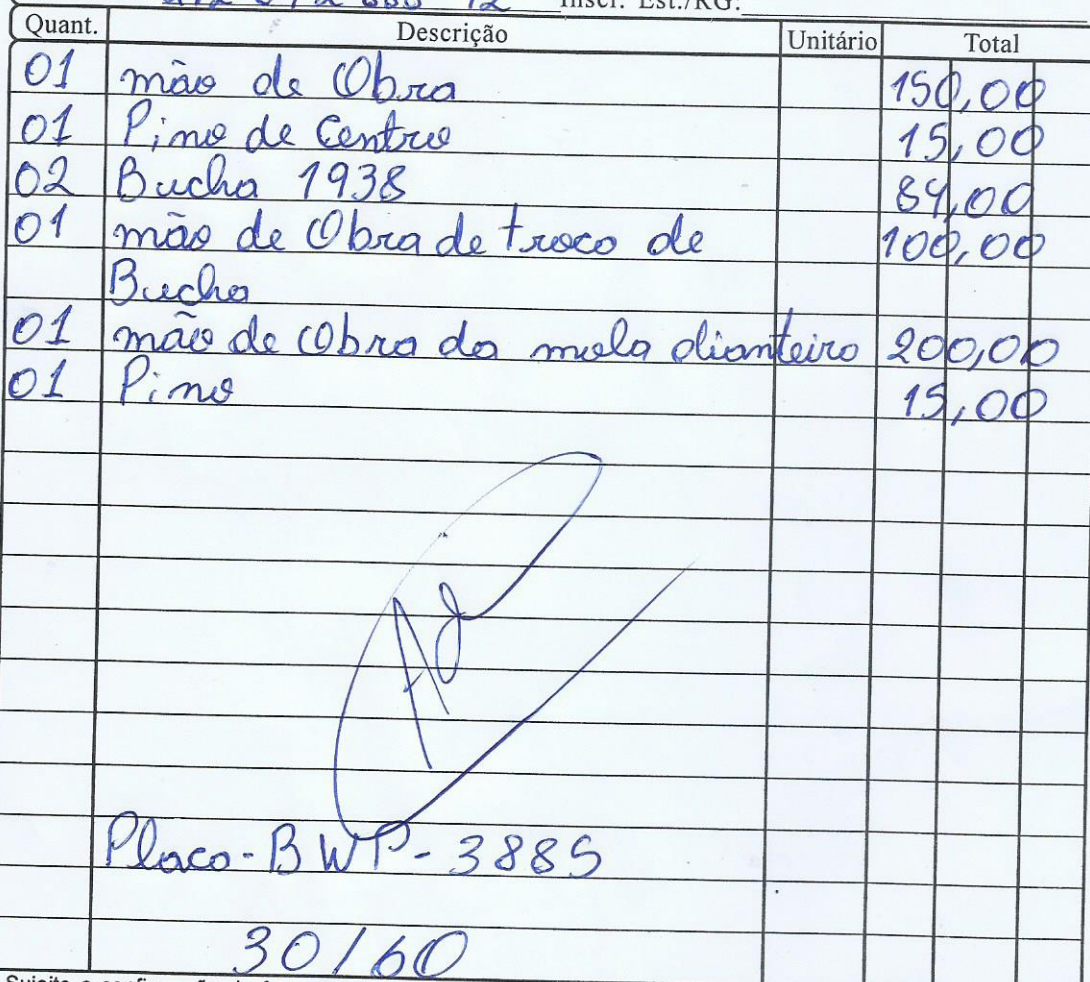 Inscr. Est./RG:
Quant. Descrição Unitário Total
01 mão de Obra 150,00
01 Pino de Centro 15,00
02 Bucha 1938 84,00
01 mão de Obra de troco de 100,00
Bucha
01 mão de Obra da mola dianteiro 200,00
01 Pino 15,00
Placa-BWP-3885
30/60